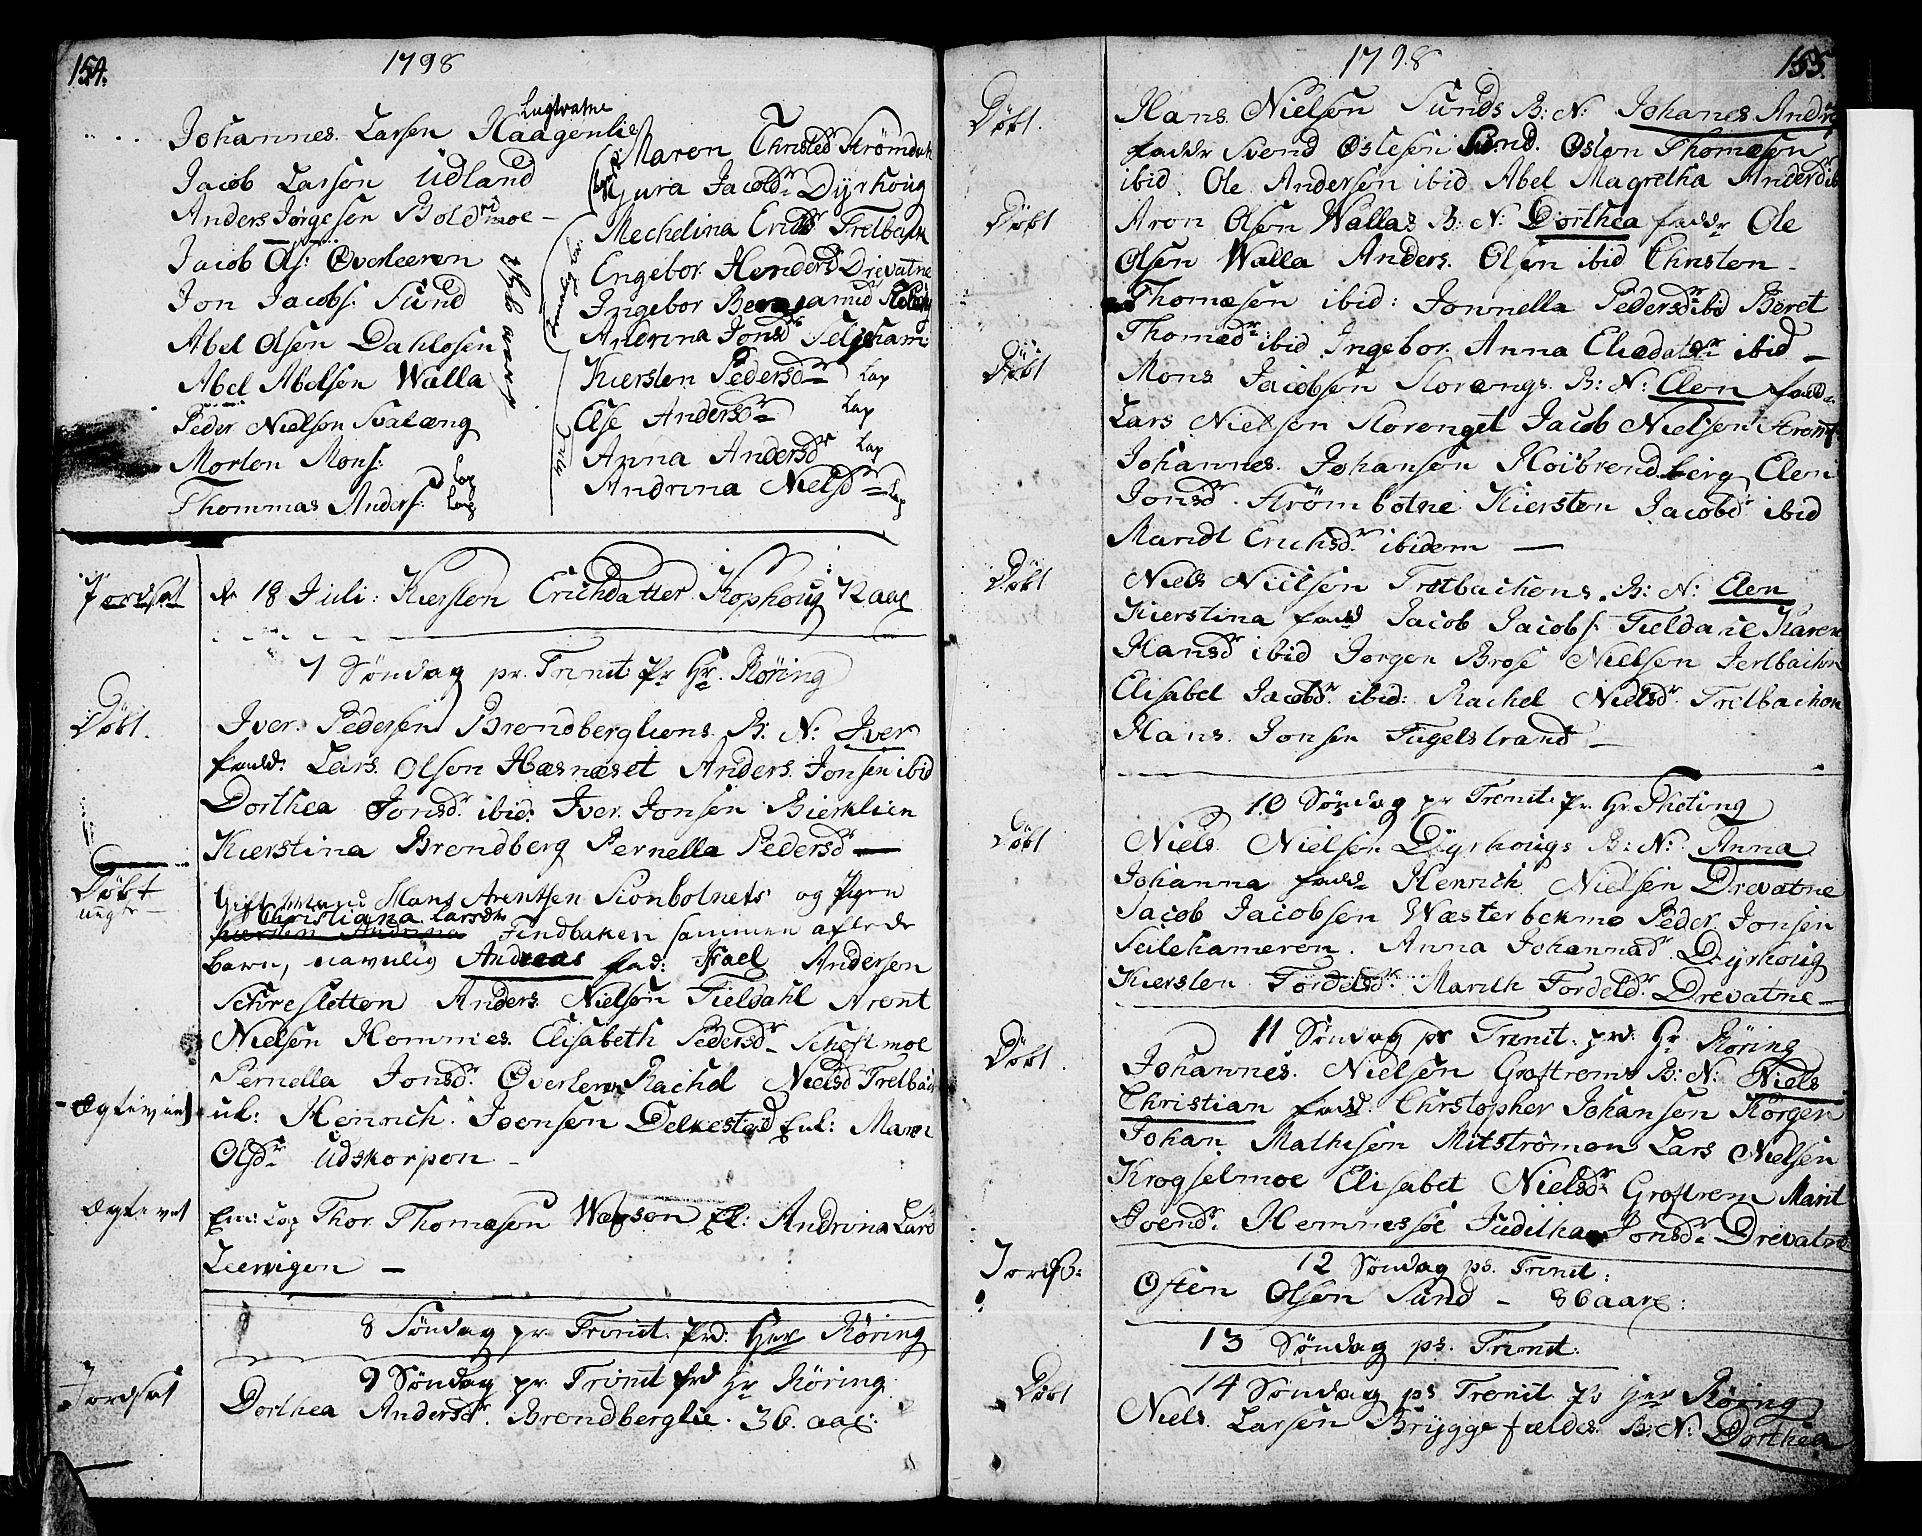 154.
1798
Johannes. Larsen Haagenlie
Jacob Larsen Udland
Anders Jørgesen Boldmoe
Jacob Ols: Øverleeren
Jon Jacobs. Sund
Abel Olsen Dahlosen
Abel Abelsen Walla
Peder Nielsen Svalæng
Morten Mons: Lap
Thommas Anders: Lap
Maren Christed
Gura Jacobdr Dyrhoug
Mechelina Erichs Trelbach
Engebor Hendersd Drevatne
Ingebor
Andrina Jonsd Seljeham:
Kiersten Pedersdr Lap
Else Andersdr Lap
Anna Andersdr Lap
Andrina Nielsdr Lap
Jordsat
18 Juli: Kiersten Erichdatter Kophoug
7 Søndag pr. Trinit: Pr Hr. Røring
Døbt.
Iver Pedersen Brendberglien's B: N: Iver
fadd: Lars Olsen Hæsnæset Anders. Jonsen ibid
Dorthea Jonsdr. ibid. Iver Jonsen Bierklien
Kierstina Brendberg Pernella Pedersdr
Døbt
uægte
Gift Mand Hans Arentsen Sionbotnets og Pigen
Christiana Larsdr
Kiersten Andrina Findbaken sammen aflede
barn, navnlig Andreas fad: Andersen
Anders. Nielsen Fieldahl Arent
Nielsen Hemmes Elisabeth Pedersdr Schestmoe
Pernella Jonsdr. Øverleren Rachel Nielsd Trelbach
Ægteviet
uk: Henrich. Joensen Delkestad Enk: Maren
Olsdr Udskorpen
Ægteviet
Em: Lap Thor Thomæsen El: Andrina Lars
Leervigen
8 Søndag pr. Trinit. Prd: Her Røring
9 Søndag pr. Trinit Prd Hr Røring
Jordsat
Dorthea Andersdr. Brendberglie. 36. aar:
1798
155.
Døbt.
Hans Nielsen Sunds B: N: Johanes Andr
faddr Svend Østesen Sund. Østen Thomæsen
ibid. Ole Andersen ibid Abel Magretha Andersd
Døbt
Aron Olsen Wallas B: N: Dorthea faddr Ole
Olsen Walla Anders. Olsen ibid Christen
Thomæsen ibid: Jonnella Pedersdr ibid Beret
Thomædr ibid Ingebor. Anna Eliædatr ibid
Døbt
Mons Jacobsen Storengs. B: N: Elen fadd
Lars Nielsen Storenget Jacob Nielsen
Johannes. Johansen Høibrendberg Elen
Jonsdr. Strømbotne Kiersten Jacobdr ibid
Maridt Erichsdr. ibidem
Døbt
Niels Nielsen Trelbachens. B: N: Elen
Kierstina fadd Jacob Jacobs. Fieldahl Karen
Hansdr ibid Jorgen Brose Nielsen
Elisabet Jacobdr ibid: Rachel Nielsdr. Trelbachen
Hans. Jonsen Fugelstrand
10 Søndag pr Trinit. Pr. Hr.
Døbt
Niels. Nielsen Dyrhougs B: N: Anna
Johanna fadd Henrich Nielsen Drevatne
Jacob Jacobsen Wæsterbekmo Peder Jonsen
Seilehameren. Anna Johannadr. Dyrhoug
Kiersten Tordelsdr. Marith Tordeldr. Drevatne
11 Søndag pr Trinit. prd: Hr Røring
Døbt.
Johannes. Nielsen Groftrems B: N: Niels
Christian fadd. Christopher Johansen Korgen
Johan Mathisen Mitstrømen Lars Nielsen
Krogselmoe Elisabet Nielsdr Groftrem Marit
Svendr. Hemnessøe Juditha Jonsdr. Drevatne
12 Søndag ps. Trinit:
Jords:
Østen Olsen Sund - 86 aar:
13 Søndag ps. Trinit:
14 Søndag ps Trinit. Pr Her Røring
Døbt
Niels. Larsen Bryggefieldes. B: N: Dorthea